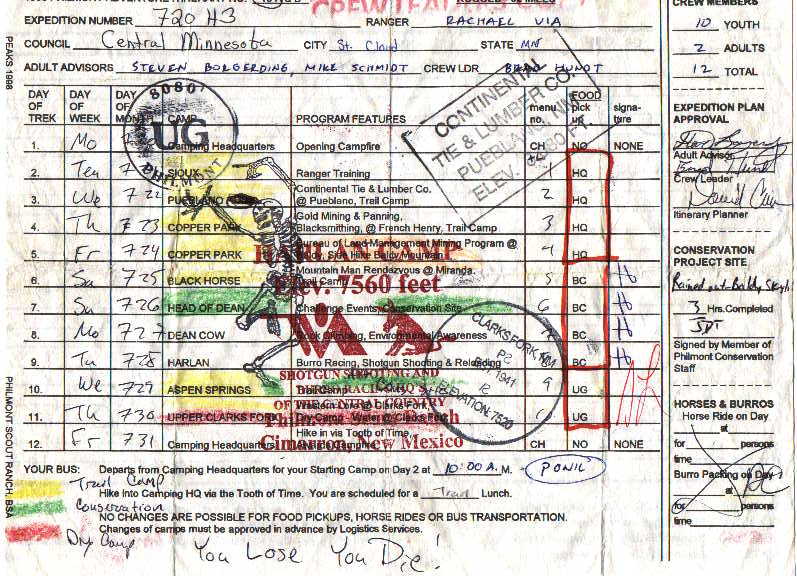 EXPEDITION NUMBER 720 H3 RANGER RACHAEL VIA
COUNCIL Central Minnesota CITY St. Cloud STATE MN
ADULT ADVISORS STEVEN BORGERDING, MIKE SCHMIDT CREW LDR HUNDT
DAY OF TREK DAY OF WEEK DAY OF MONTH CAMP PROGRAM FEATURES menu no. FOOD pick up signa-ture
1. Mo Camping Headquarters Opening Campfire CH NO NONE
2. Tu SIOUX Ranger Training 1 HQ
3. We 722 PUEBLANO Continental Tie & Lumber Co. @ Pueblano, Trail Camp 2 HQ
4. Th 723 COPPER PARK Gold Mining & Panning, Blacksmithing, @ French Henry, Trail Camp 3 HQ
5. Fr 724 COPPER PARK Bureau of Land Management Mining Program @ Side Hike Baldy Mountain 4 HQ
6. Sa 725 BLACK HORSE Mountain Man Rendezvous @ Miranda. Trail Camp 5 BC H
7. Su 726 HEAD OF DEAN Challenge Events, Conservation Site 6 BC H
8. Mo 727 DEAN COW Rock Climbing, Environmental Awareness BC H
9. Tu 728 HARLAN Burro Racing, Shotgun Shooting & Reloading BC H
10. We 729 ASPEN SPRINGS Trail Camp 9 UG
11. Th 730 UPPER CLARKS FORK Western Lore @ Clarks Fork, Dry Camp - Water @ Clarks Fork 10 UG
12. Fr 731 Camping Headquarters Hike in via Tooth of Time, Campfire CH NO NONE
YOUR BUS: Departs from Camping Headquarters for your Starting Camp on Day 2 at 10:00 A. M. - PONIL
Hike into Camping HQ via the Tooth of Time. You are scheduled for a Trail Lunch.
NO CHANGES ARE POSSIBLE FOR FOOD PICKUPS, HORSE RIDES OR BUS TRANSPORTATION.
Changes of camps must be approved in advance by Logistics Services.
Trail Camp
Conservation
Dry Camp
You Lose You Die!
PEAKS 1998
PHILMONT SCOUT RANCH, BSA
80807
UG
PHILMONT
CONTINENTAL
TIE & LUMBER CO.
PUEBLANO, NM
ELEV.
HARLAN CAMP
Elev. 7560 feet
SHOTGUN SHOOTING AND
BURRO RACING HQ'S
OF THE CENTRAL COUNTRY
Philmont Scout Ranch
Cimarron, New Mexico
CLARKS FORK, NM
1941
ELEVATION 7520
CREW MEMBERS
10 YOUTH
2 ADULTS
12 TOTAL
EXPEDITION PLAN
APPROVAL
Adult Advisor
Crew Leader
Itinerary Planner
CONSERVATION
PROJECT SITE
Rained out - Baldy
3 Hrs.Completed
Signed by Member of
Philmont Conservation
Staff
HORSES & BURROS
Horse Ride on Day
at
for persons
time
Burro Packing on Day
at
for persons
time